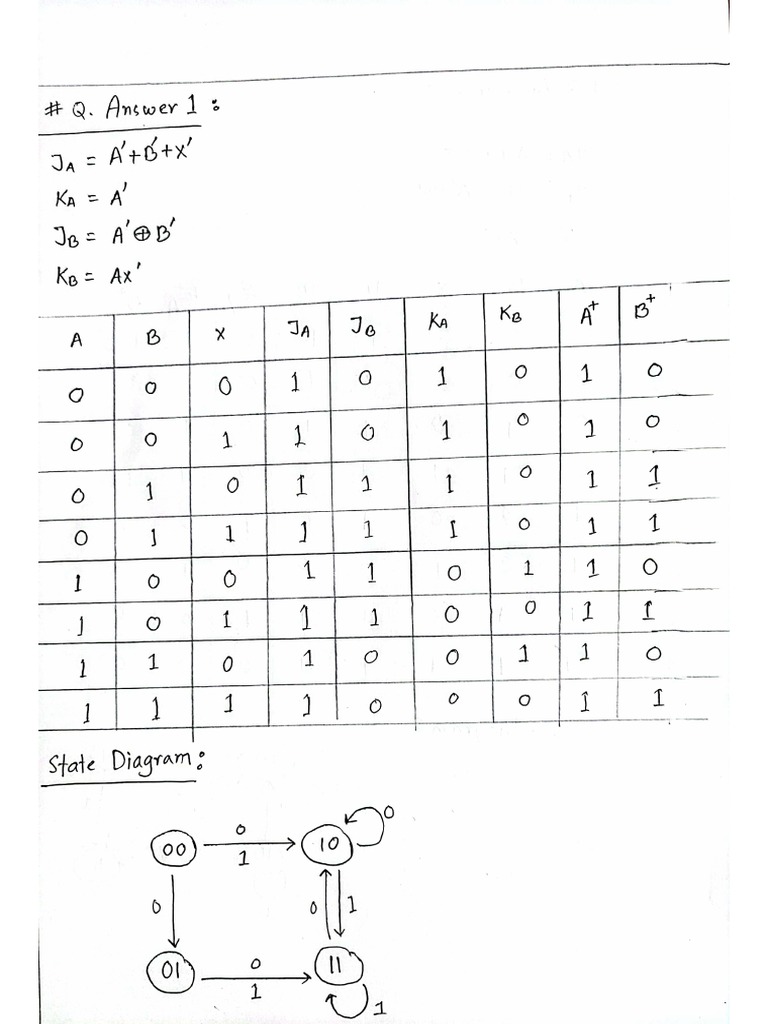 # Q. Answer 1 :
JA = A'+B'+X'
KA = A'
JB = A'⊕B'
KB = AX'
A B X JA JB KA KB A+ B+
0 0 0 1 0 1 0 1 0
0 0 1 1 0 1 0 1 0
0 1 0 1 1 1 0 1 1
0 1 1 1 1 1 0 1 1
1 0 0 1 1 0 1 1 0
1 0 1 1 1 0 0 1 1
1 1 0 1 0 0 1 1 0
1 1 1 1 0 0 0 1 1
State Diagram :
00 0 1 10 0
0 0 1
01 0 1 11 1